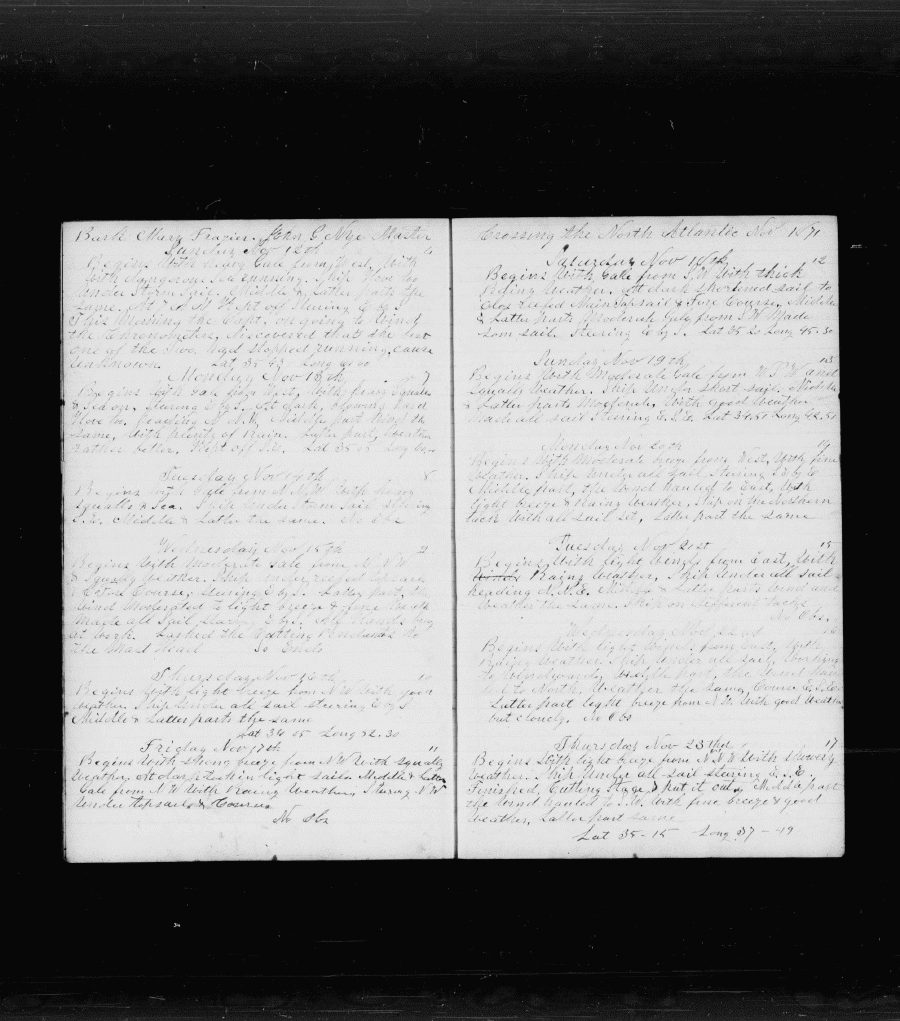 Bark Mary Frazier. John C Nye Master
Sunday Nov 12th 6
Begins With heavy Gale from West, With
With dangerous Sea running. Ship hove to
under Storm Sail. Middle & Latter Parts the
same. At 7 A M Kept off Stearing E by S
This Morning the Capt. on going to wind
the Chronometers, Discovered that the
one of the two had stopped running, cause
unknown. Lat, 35 43 Long 60 00
Monday Nov 13th 7
Begins With Gale from With heavy Squalls
& Sea on, Stearing E by S. At dark, blowing hard
Hove to, heading N. N. E, Middle part the
same, With plenty of Rain. Latter part, Weather
rather better, Kept off S.E. Lat 35 Long
Tuesday Nov 14th 8
Begins With Gale from N. N. W With heavy
Squalls & Sea. Ship under Storm Sail Stearing
S.E. Middle & Latter the same. No Obs
Wednesday Nov 15th 9
Begins With Moderate Gale from N. N W
& Squaly Weather. Ship under reefed Topsails
& Fore Course, stearing E by S. Latter part, the
Wind Moderated to light breeze & fine Weather
Made all Sail, Stearing E by S. All hands busy
at Work. Lashed the Cutting Pendants to
the Mast Head So Ends
Thursday Nov 16th 10
Begins With light breeze from N W With good
Weather. Ship under all sail steering E by S
Middle & Latter parts the same
Lat 34 15 Long 52.30
Friday Nov 17th 11
Begins With strong breeze from N W With Squaly
Weather. At dark took in light sails. Middle & Latter
Gale from N W With Rainy Weather, Stearing
under topsails & Courses
No Obs
Crossing the North Atlantic Nov 1871
Saturday Nov 18th 12
Begins With Gale from S.W With thick
Rainy Weather. At dark shortened sail to
Close reefed Main topsail & Fore Course. Middle
& Latter parts Moderate Gale from S W Made
some sail. Stearing E by S. Lat 35 20 Long 45.30
Sunday Nov 19th 13
Begins With Moderate Gale from W.S.W and
Squaly Weather. Ship under short sail. Middle
& Latter parts Moderate, With good Weather
Made all sail Stearing E.S.E. Lat 34.51 Long 42.51
Monday Nov 20th 14
Begins With Moderate breeze from West, With fine
Weather. Ship under all Sail Stearing E by S
Middle part, the Wind hauled to East, With
light breeze & Rainy Weather. Ship on the Northern
tack With all Sail set, Latter part the same
Tuesday Nov 21st 15
Begins With light breeze from East, With
Rainy Weather, Ship under all sail
heading N.N.E. Middle & Latter parts wind and
Weather the same. Ship on different tacks
No Obs,
Wednesday Nov 22nd 16
Begins With light breeze from East, With
Rainy Weather. Ship under all sail, Working
to Windward, Middle part, the Wind
to North. Weather the same, Course E.S.E.
Latter part light breeze from N. W. With good Weather
but cloudy. No Obs
Thursday Nov 23rd 17
Begins With light breeze from N. N W With Showery
Weather. Ship under all sail stearing E. S. E.
Finished Cutting Stage, & put it out, Middle part
the Wind hauled to S. W. With fine breeze & good
Weather, Latter part same
Lat 35 - 15 Long 37 - 49